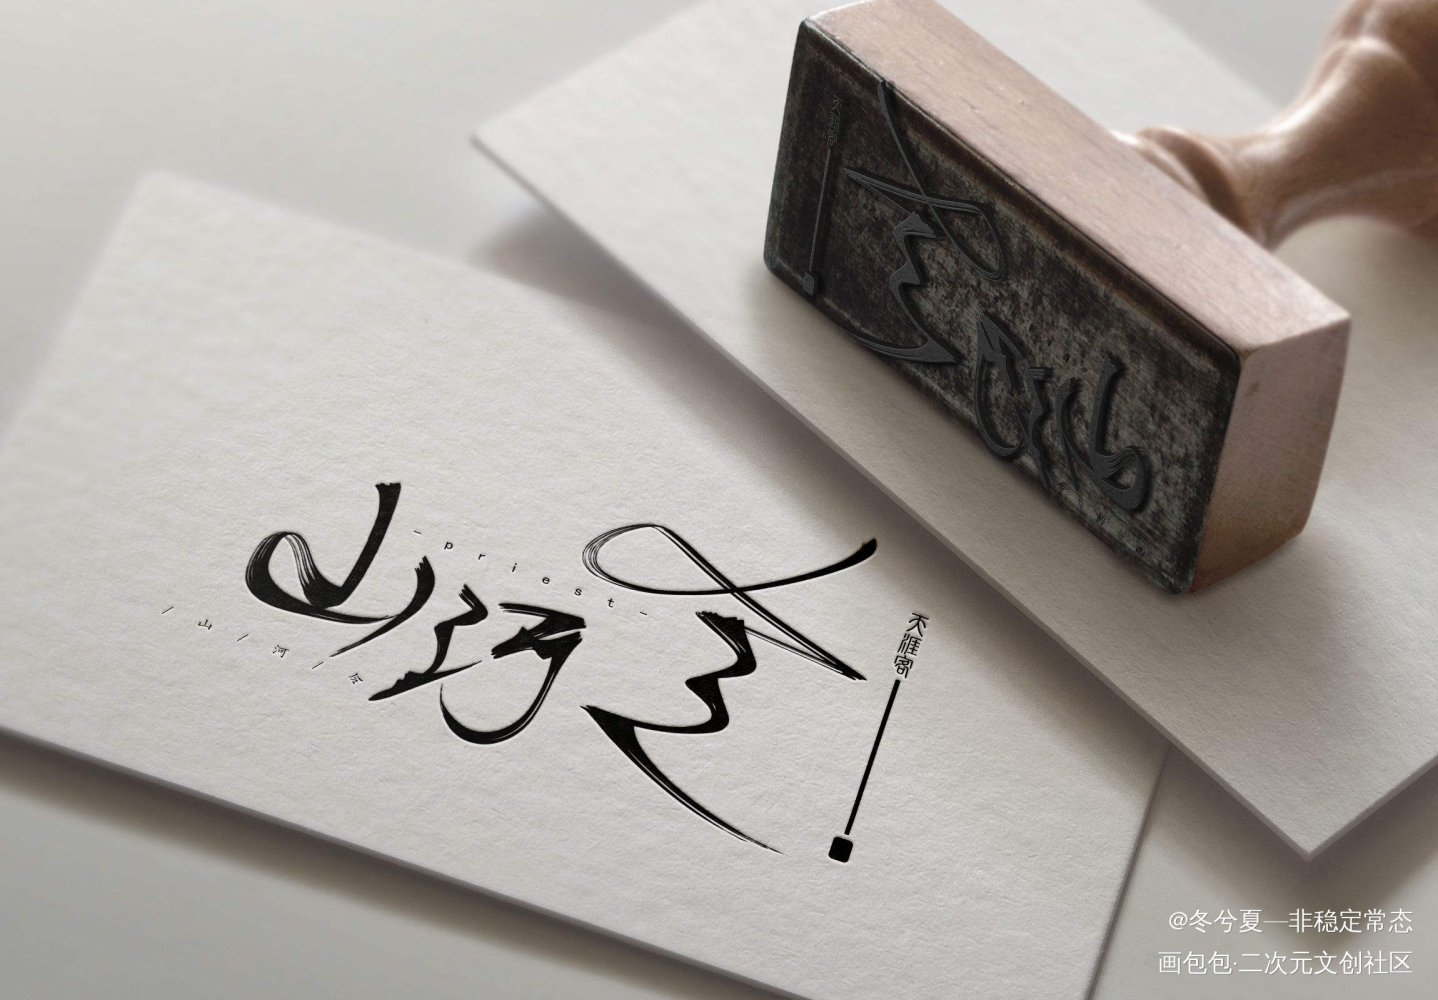 山河令
-priest-
/山/河/令
天涯客
@冬兮夏—非稳定常态
画包包·二次元文创社区